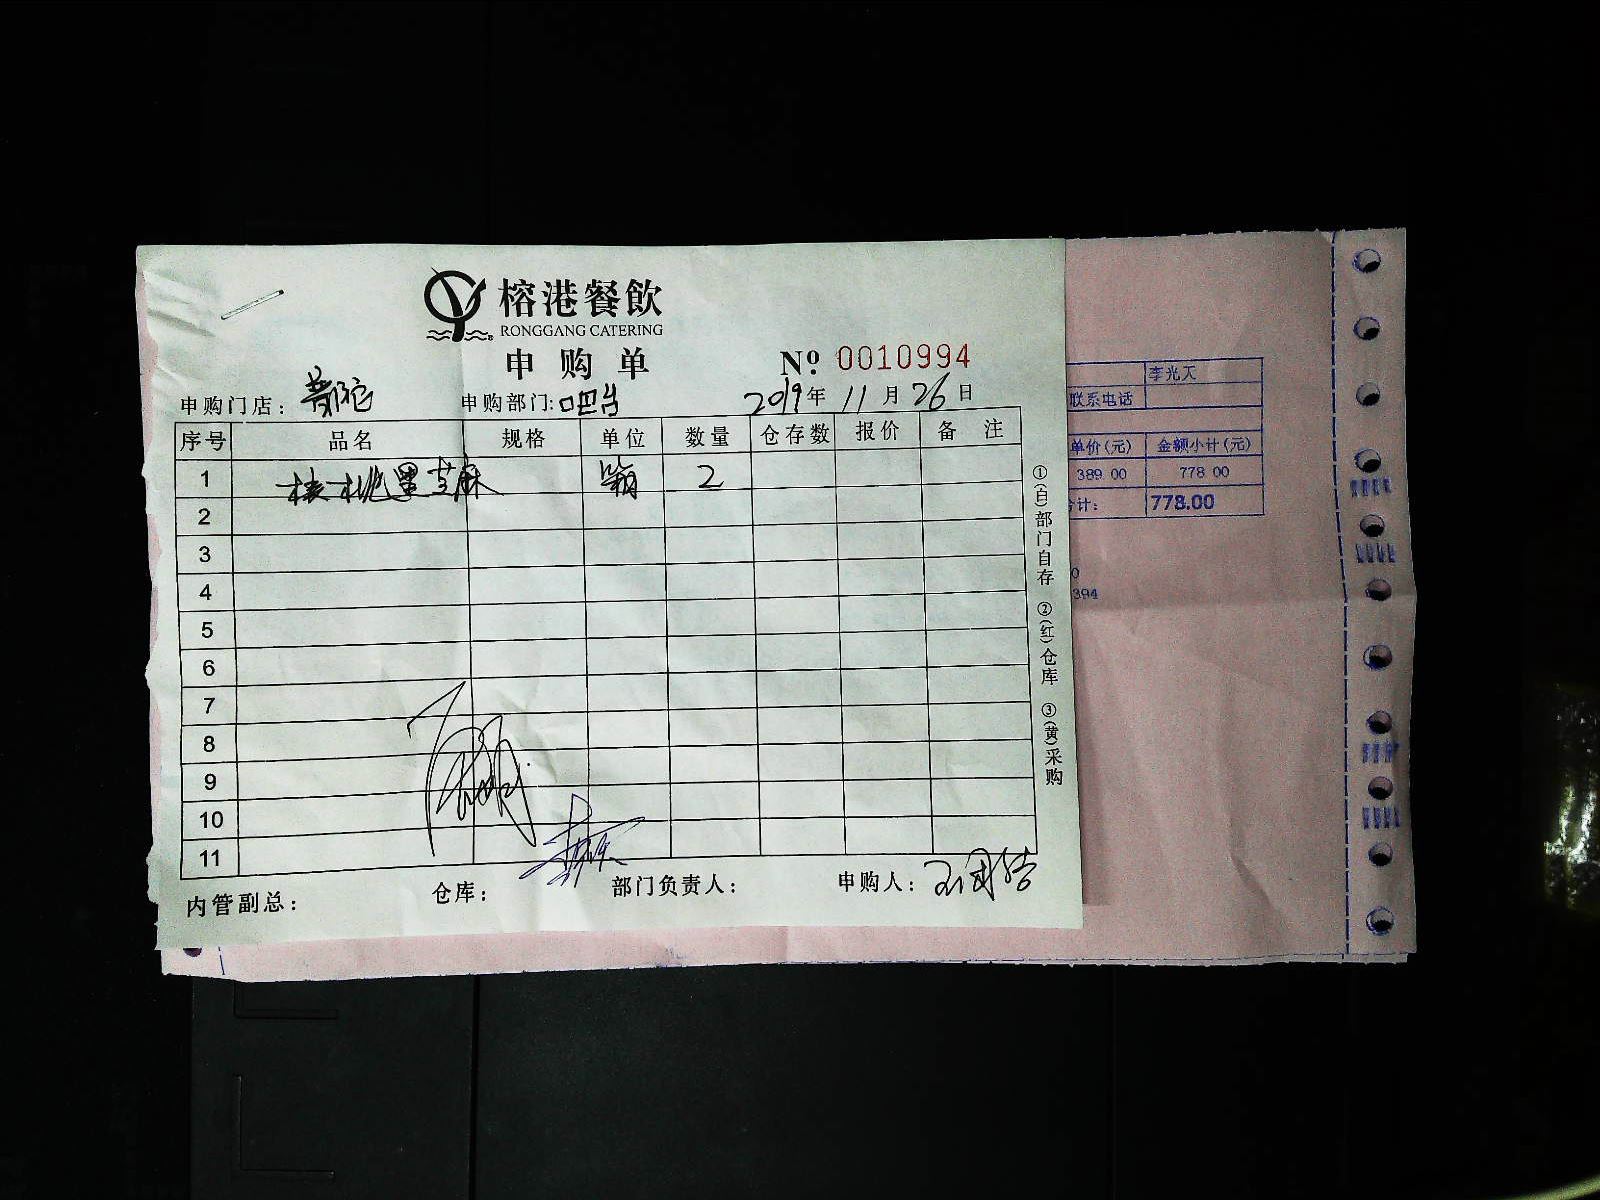 榕港餐飲
RONGGANG CATERING
申购单
Nº 0010994
申购门店：普陀 申购部门：吧台 2019年11月26日
序号 品名 规格 单位 数量 仓存数 报价 备注
1 核桃黑芝麻 箱 2
2
3
4
5
6
7
8
9
10
11
内管副总： 仓库： 部门负责人： 申购人：
①(白)部门自存 ②(红)仓库 ③(黄)采购
李光天
联系电话
单价(元) 金额小计(元)
389.00 778.00
计： 778.00
0
394